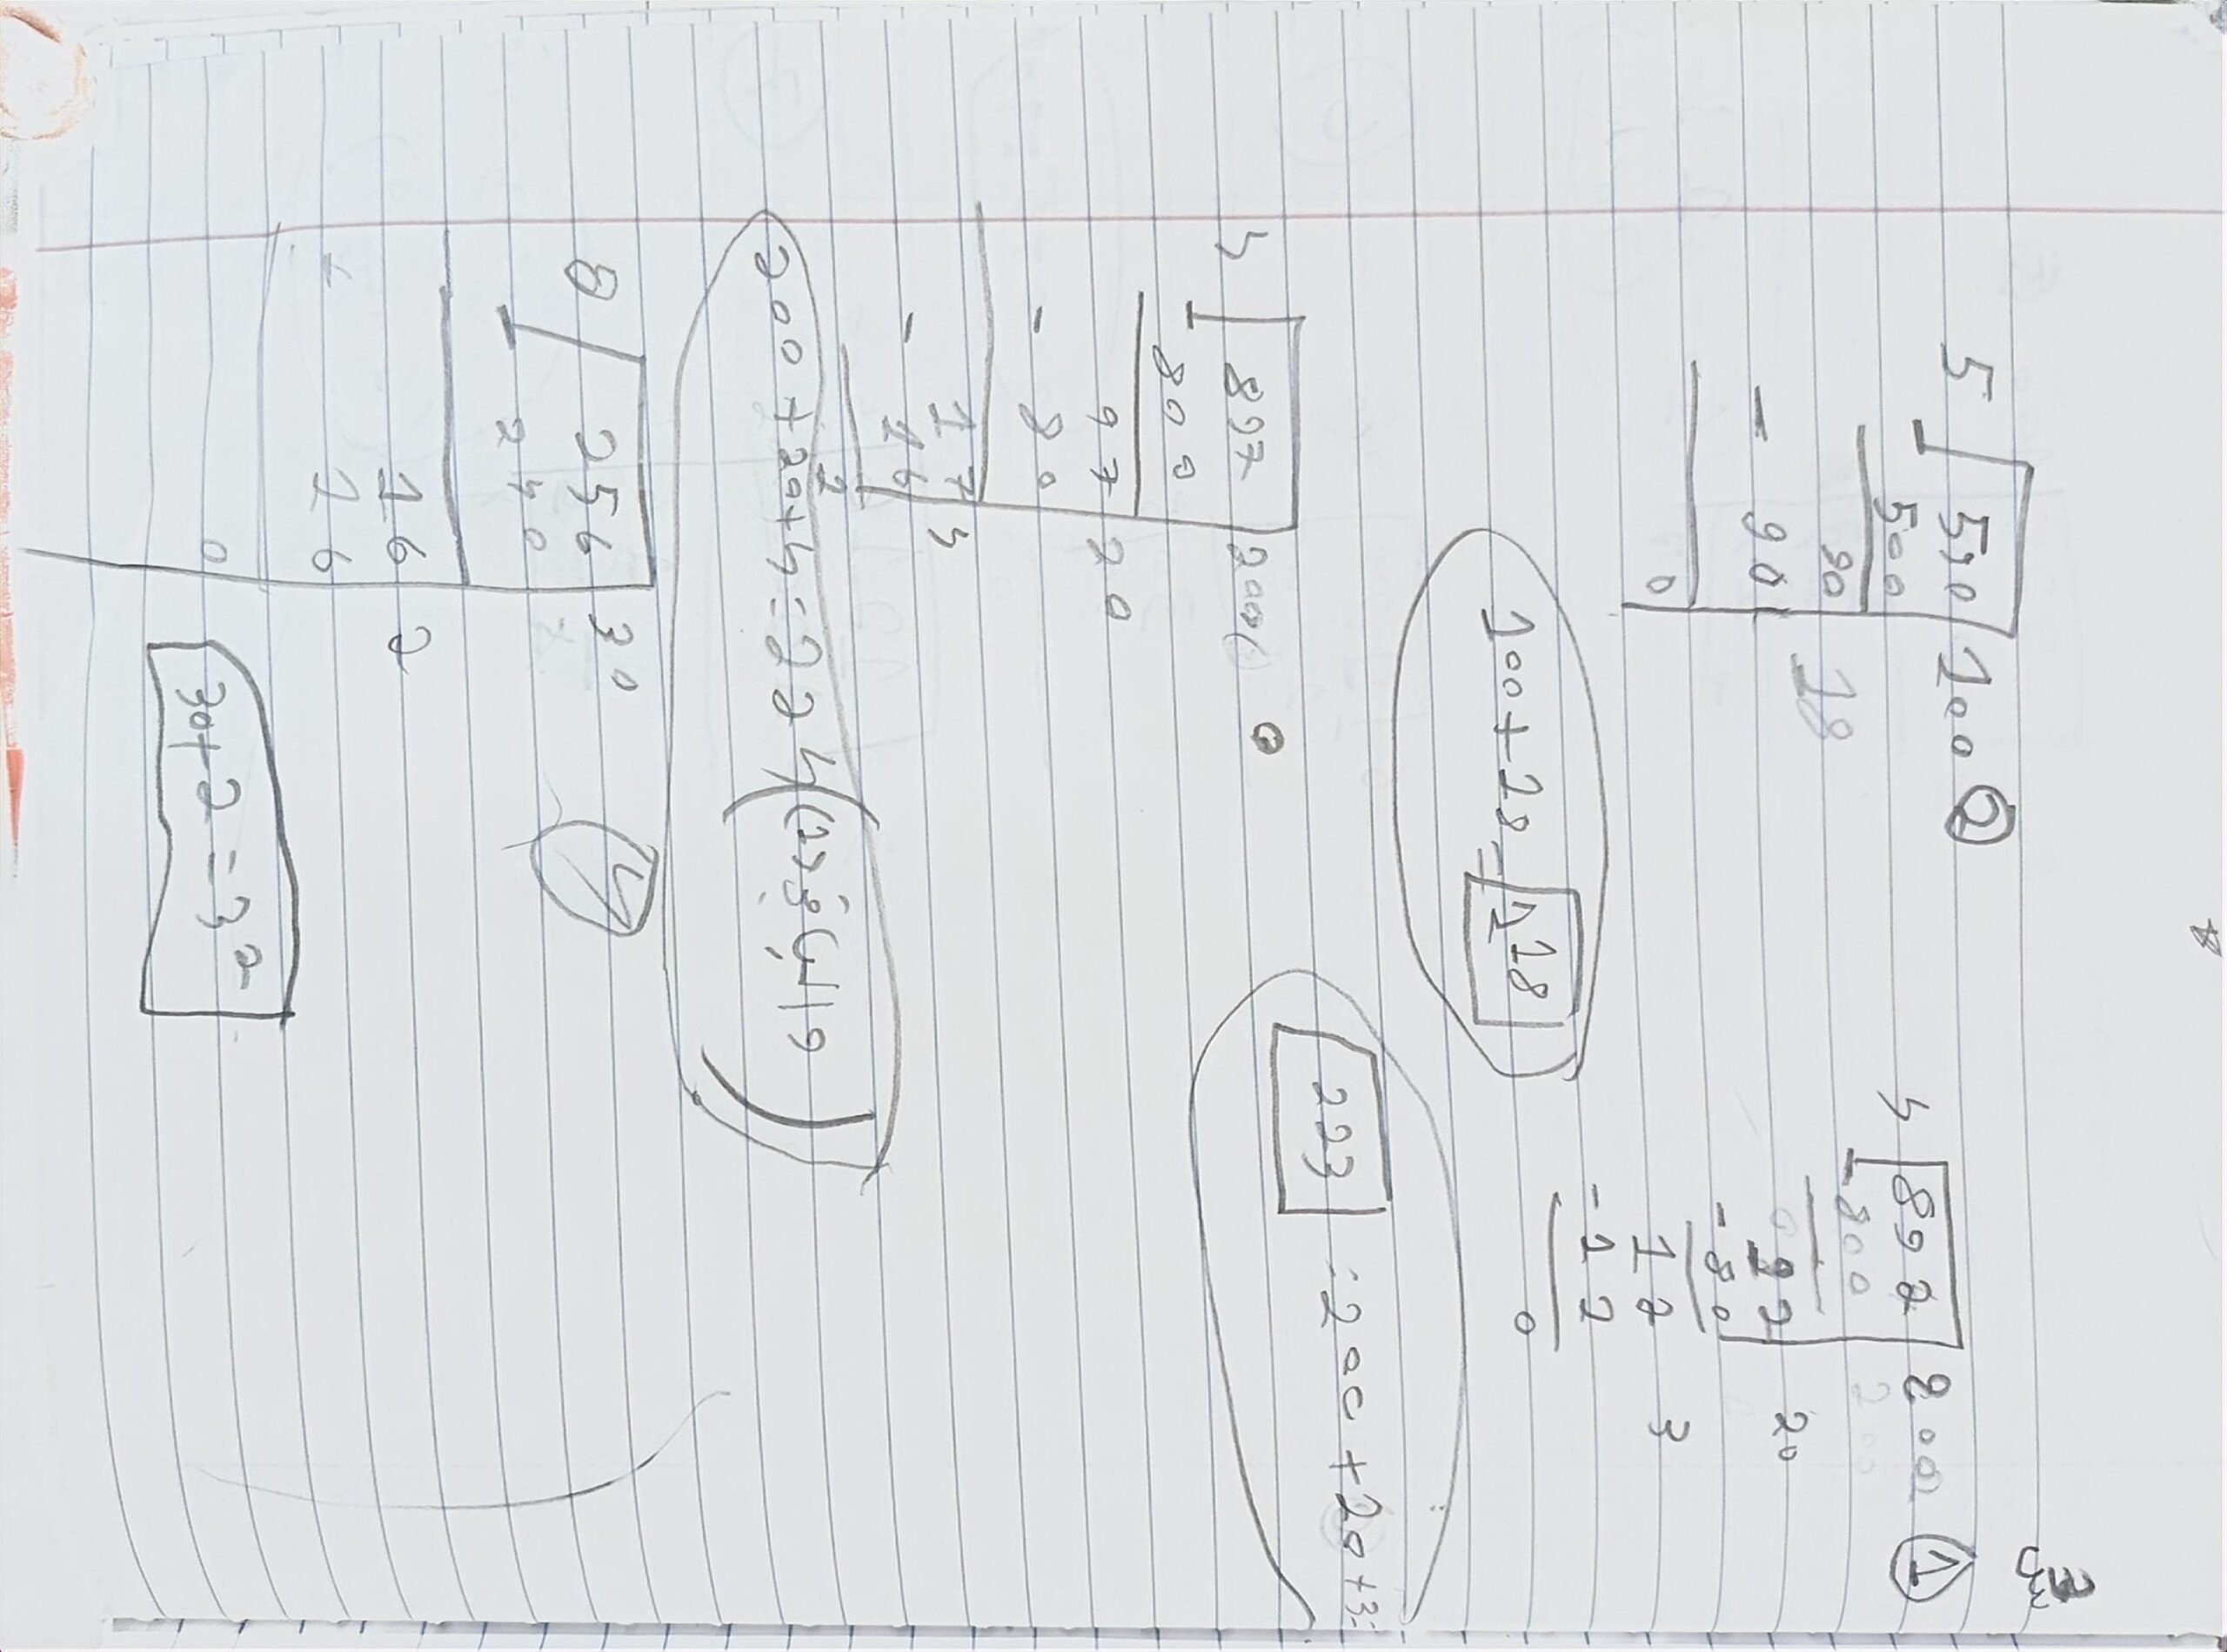 س3
1
4 892 200
- 800
92 20
- 80
12 3
- 12
0
223 = 200 + 20 + 3
2
5 590 100
500
90 18
- 90
0
100 + 18 = 118
4 897 200
800
97 20
- 80
17 4
- 16
200 + 20 + 4 = 224 (والباقي 1)
8 256 30
240
16 2
16
0
30 + 2 = 32